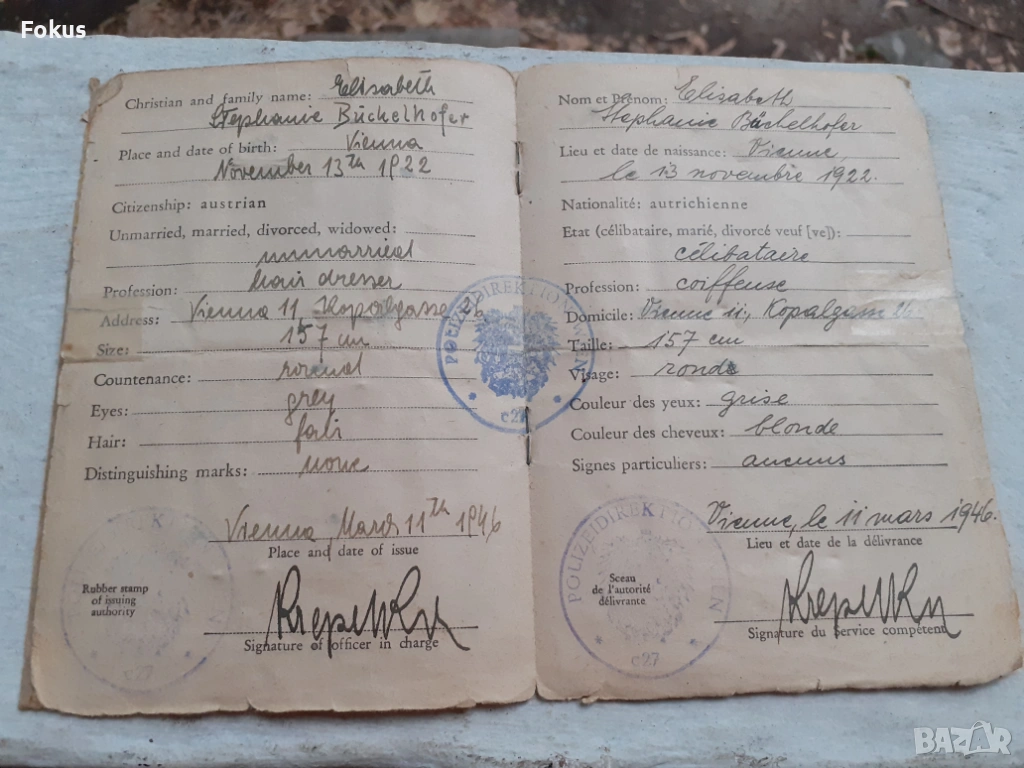 Fokus
Christian and family name: Elisabeth
Stephanie Büchelhofer
Place and date of birth: Vienna
November 13th 1922
Citizenship: austrian
Unmarried, married, divorced, widowed:
unmarried
Profession: hair dresser
Address: Vienna 11, Kopalgasse 26
Size: 157 cm
Countenance: round
Eyes: grey
Hair: fair
Distinguishing marks: none
Vienna, March 11th 1946
Place and date of issue
Rubber stamp
of issuing
authority
Signature of officer in charge
POLIZEIDIREKTION WIEN
c27
Nom et Prénom: Elisabeth
Stephanie Büchelhofer
Lieu et date de naissance: Vienne,
le 13 novembre 1922.
Nationalité: autrichienne
Etat (célibataire, marié, divorcé veuf [ve]):
célibataire
Profession: coiffeuse
Domicile: Vienne 11., Kopalgasse 26.
Taille: 157 cm
Visage: ronde
Couleur des yeux: grise
Couleur des cheveux: blonde
Signes particuliers: aucuns
Vienne, le 11 mars 1946.
Lieu et date de la délivrance
Sceau
de l'autorité
délivrante
Signature du service compétent
POLIZEIDIREKTION WIEN
c27
c27
BAZAR